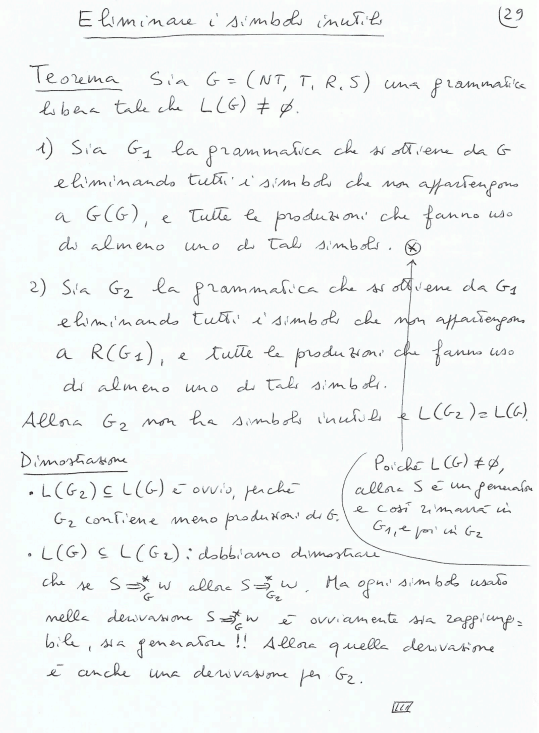 Eliminare i simboli inutili
(29
Teorema Sia G = (NT, T, R, S) una grammatica
libera tale che L(G) ≠ ∅.
1) Sia G₁ la grammatica che si ottiene da G
eliminando tutti i simboli che non appartengono
a G(G), e tutte le produzioni che fanno uso
di almeno uno di tali simboli. ⊛
2) Sia G₂ la grammatica che si ottiene da G₁
eliminando tutti i simboli che non appartengono
a R(G₁), e tutte le produzioni che fanno uso
di almeno uno di tali simboli.
Allora G₂ non ha simboli inutili e L(G₂) = L(G).
Dimostrazione
• L(G₂) ⊆ L(G) è ovvio, perché
G₂ contiene meno produzioni di G.
Poiché L(G) ≠ ∅,
allora S è un generatore
e così rimarrà in
G₁, e poi in G₂
• L(G) ⊆ L(G₂): dobbiamo dimostrare
che se S ⇒*_G w allora S ⇒*_G₂ w. Ma ogni simbolo usato
nella derivazione S ⇒*_G w è ovviamente sia raggiungi=
bile, sia generatore!! Allora quella derivazione
è anche una derivazione per G₂.